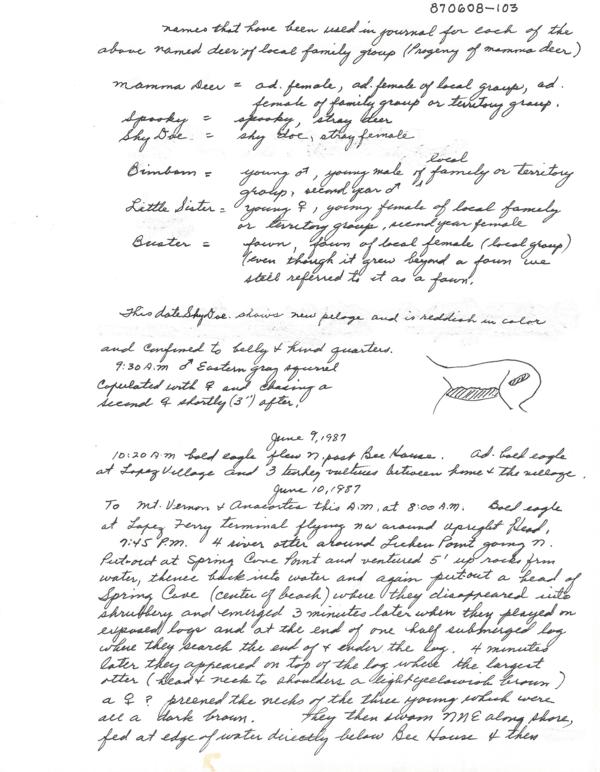 870608-103
names that have been used in journal for each of the
above named deer of local family group (Progeny of mamma deer)
Mamma Deer = ad. female, ad. female of local group, ad.
female of family group or territory group.
Spooky = spooky, stray deer
Shy Doe = shy doe, stray female
local
Bimbam = young ♂, young male of family or territory
group, second year ♂
Little Sister = young ♀, young female of local family
or territory group, second year female
Buster = fawn, fawn of local female (local group)
(even though it grew beyond a fawn we
still referred to it as a fawn.
This date Shy Doe. shows new pelage and is reddish in color
and confined to belly & hind quarters.
9:30 A.M ♂ Eastern gray squirrel
copulated with ♀ and chasing a
second ♀ shortly (3") after.
June 9, 1987
10:20 A.M bald eagle flew N. past Bee House. Ad. bald eagle
at Lopez Village and 3 turkey vultures between home & the village.
June 10, 1987
To Mt. Vernon & Anacortes this A.M. at 8:00 A.M. Bald eagle
at Lopez Ferry terminal flying NW around Upright Head.
7:45 P.M. 4 river otter around Lichen Point going N.
Put out at Spring Cove Point and ventured 5' up rocks from
water, thence back into water and again put out a head of
Spring Cove (center of beach) where they disappeared into
shrubbery and emerged 3 minutes later when they played on
exposed logs and at the end of one half submerged log
where they search the end of & under the log. 4 minutes
later they appeared on top of the log where the largest
otter (head & neck to shoulders a light yellowish brown)
a ♀ ? preened the necks of the three young which were
all a dark brown. They then swam NNE along shore,
fed at edge of water directly below Bee House & then